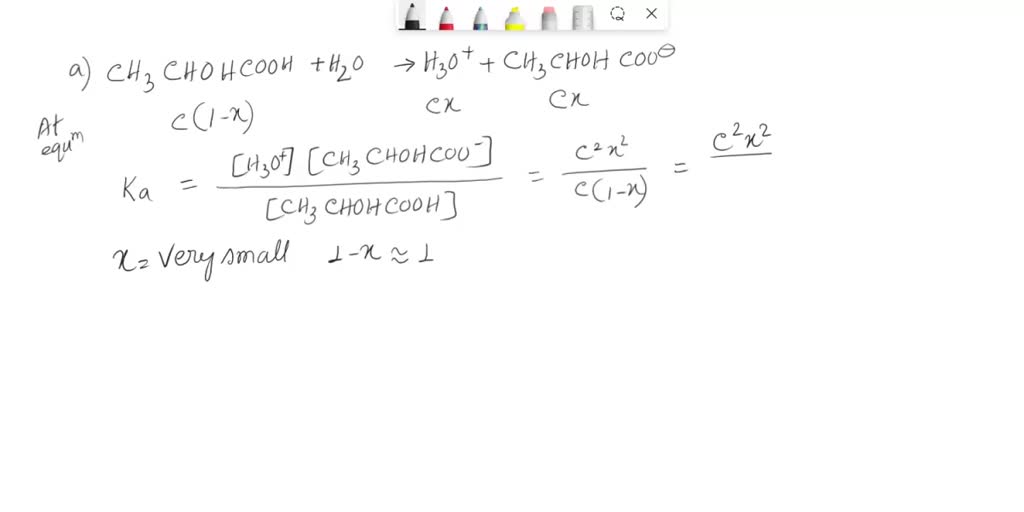 a) CH₃CHOHCOOH + H₂O → H₃O⁺ + CH₃CHOHCOO⊖
At equᵐ C(1-x) Cx Cx
Ka = [H₃O⁺] [CH₃CHOHCOO⁻] / [CH₃CHOHCOOH] = C²x² / C(1-x) = C²x²
x = very small 1-x ≈ 1